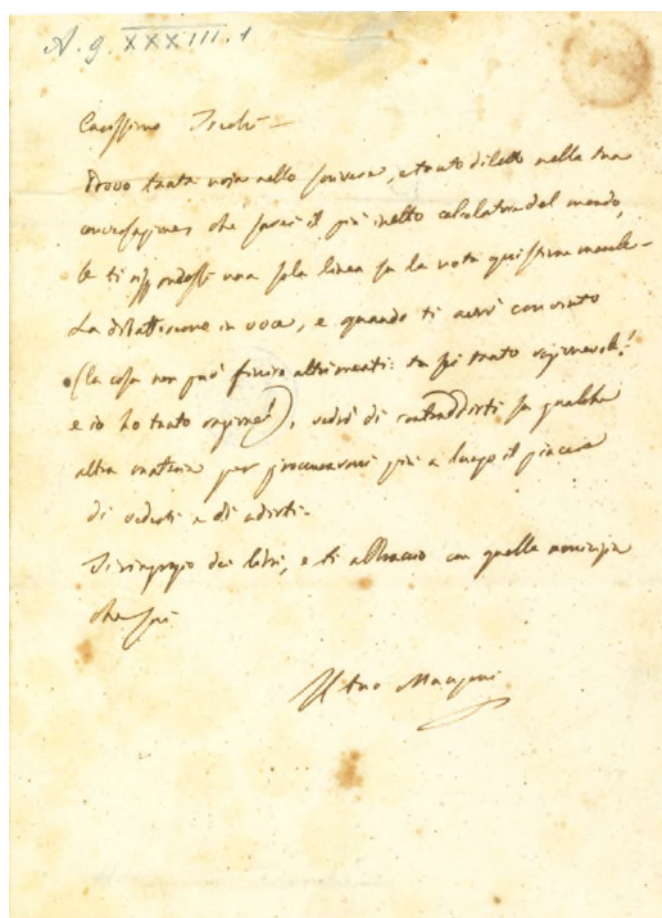 A. g. XXXIII. 1
Carissimo
Provo tanta noja nello scrivere, e tanto diletto nella tua
conversazione, che sarei il più inetto calcolatore del mondo,
se ti rispondessi una sola linea su la nota quistione
La dibatteremo in voce, e quando ti avrò convinto
(la cosa non può finire altrimenti: tu sei tanto ragionevole!
e io ho tanto ragione!), vedrò di contraddirti su qualche
altra materia per procurarmi più a lungo il piacere
di vederti e di udirti.
Ti ringrazio dei libri, e ti abbraccio con quella amicizia
che sai
Il tuo Manzoni